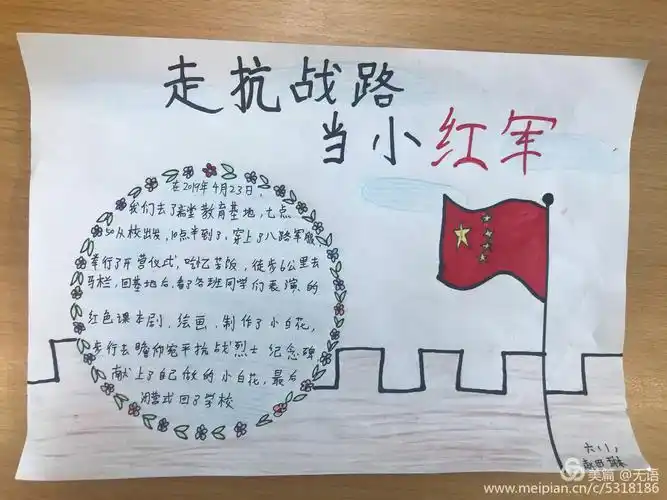 走抗战路
当小红军
在2019年4月23日,
我们去了 教育基地,七点
50从校出发,10点半到了,穿上了八路军服
举行了开营仪式,吃忆苦饭,徒步6公里去
马栏,回基地后,看了各班同学们表演的
红色课本剧,绘画,制作了小白花,
步行去瞻仰 平抗战烈士纪念碑
献上了自己做的小白花,最后
闭营式回了学校
六(1)
美篇 @无语
www.meipian.cn/c/5318186